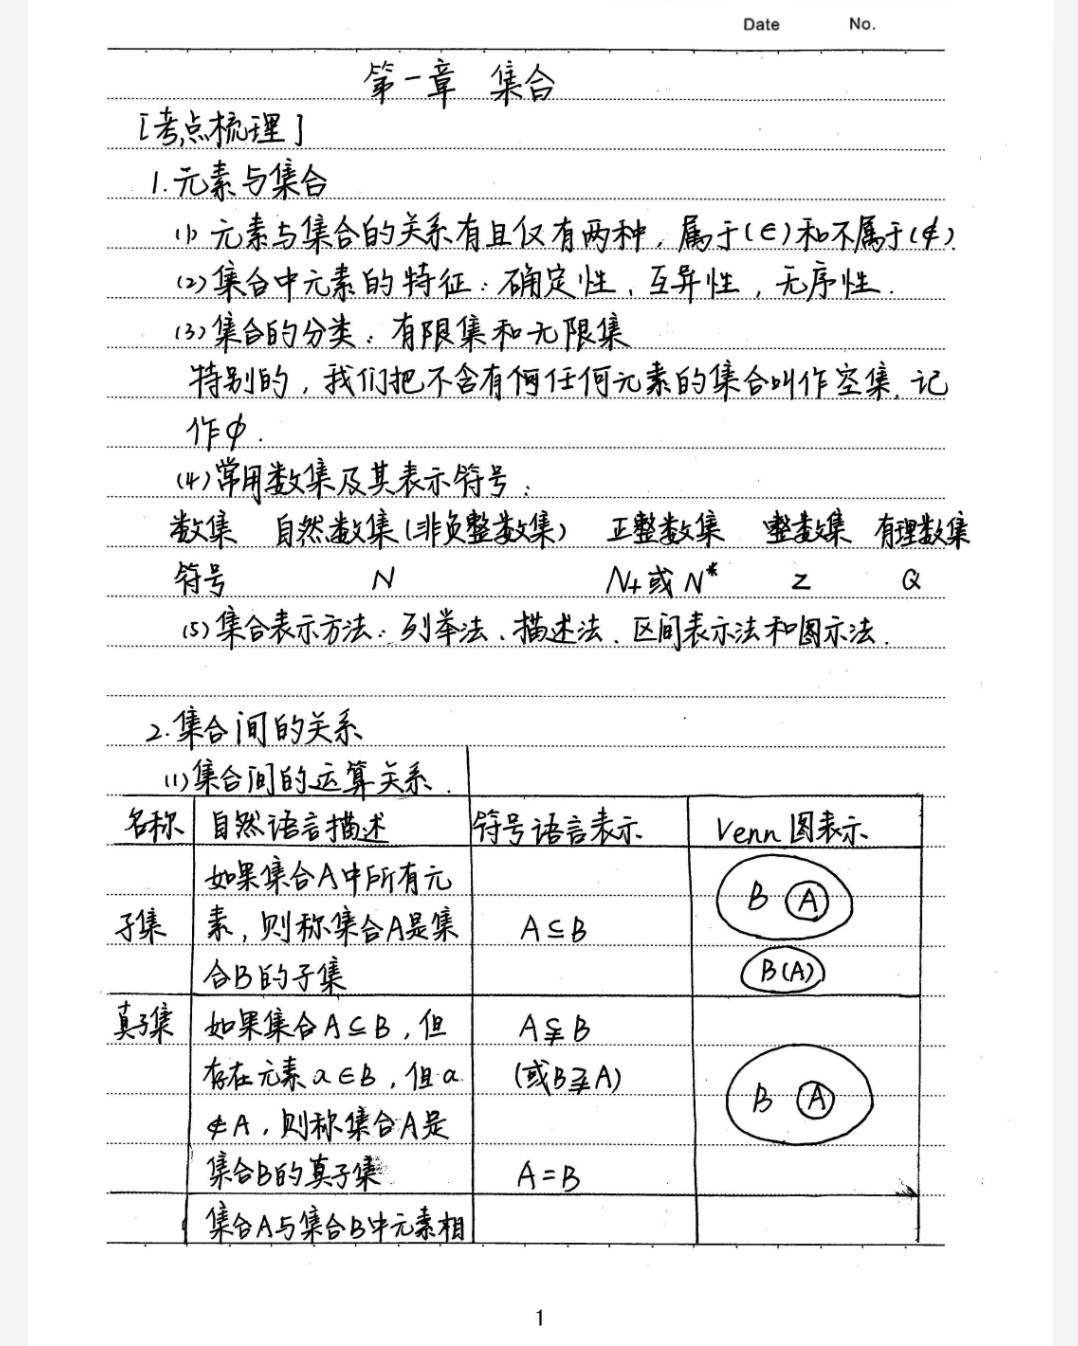 Date No.
第一章 集合
[考点梳理]
1.元素与集合
(1) 元素与集合的关系有且仅有两种，属于(∈)和不属于(∉).
(2)集合中元素的特征：确定性、互异性，无序性.
(3)集合的分类：有限集和无限集
特别的，我们把不含有何任何元素的集合叫作空集,记
作∅.
(4)常用数集及其表示符号：
数集 自然数集(非负整数集) 正整数集 整数集 有理数集
符号 N N+或N* Z Q
(5)集合表示方法：列举法、描述法、区间表示法和图示法.
2.集合间的关系
(1)集合间的运算关系.
名称 自然语言描述 符号语言表示 Venn图表示
如果集合A中所有元 B A
子集 素，则称集合A是集 A⊆B
合B的子集 B(A)
真子集 如果集合A⊆B，但 A⫋B
存在元素a∈B，但a (或B⫌A) B A
∉A，则称集合A是
集合B的真子集 A=B
集合A与集合B中元素相
1